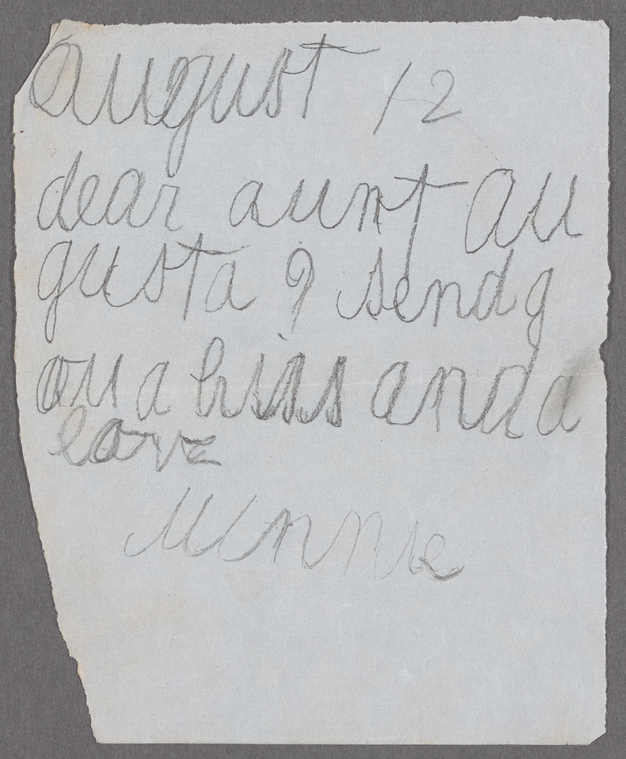 august 12
dear aunt au
gusta I send y
ou a kiss and a
love
Minnie